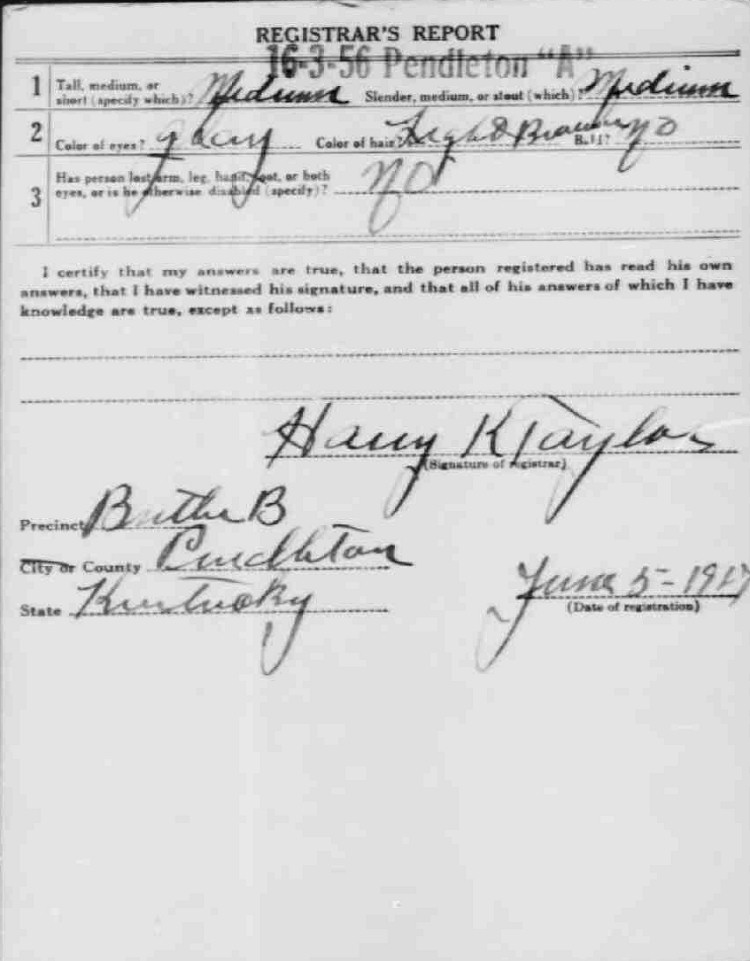 REGISTRAR'S REPORT
16-3-56 Pendleton "A"
1 Tall, medium, or short (specify which)? Medium Slender, medium, or stout (which)? Medium
2 Color of eyes? gray Color of hair? Light Brown Bald? no
3 Has person lost arm, leg, hand, foot, or both
eyes, or is he otherwise disabled (specify)? no
I certify that my answers are true, that the person registered has read his own
answers, that I have witnessed his signature, and that all of his answers of which I have
knowledge are true, except as follows:
Harry K Taylor
(Signature of registrar)
Precinct Butler B
City or County Pendleton
State Kentucky
June 5 - 1917
(Date of registration)